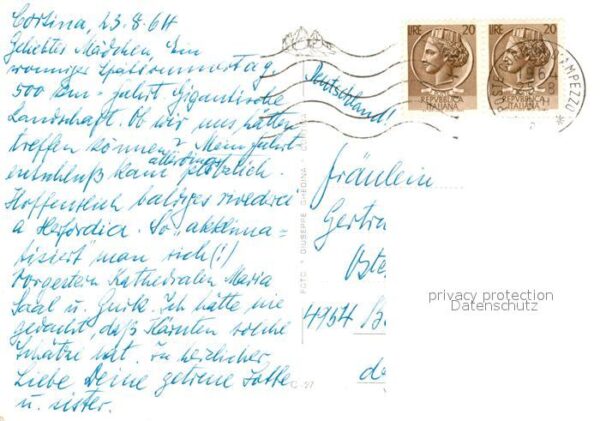 Cortina, 23.8.64
Geliebtes Mädchen Ein
wonniger Spätsommertag,
500 km-Fahrt Gigantische
Landschaft. Ob wir uns hätten
treffen können? Mein Fahrt-
entschluß kam allerdings plötzlich.
Hoffentlich baldiges rivederci
a Herfordica. So „akklima-
tisiert" man sich(!)
Vorgestern Kathedralen Maria
Saal u. Gurk. Ich hätte nie
gedacht, daß Kärnten solche
Schätze hat. In herzlicher
Liebe Deine getreue Lotte
u. sister.
FOTO * GIUSEPPE GHEDINA *
LIRE 20
REPVBBLICA
ITALIANA
LIRE 20
REPVBBLICA
ITALIANA
1964
AMPEZZO
Deutschland!
Fräulein
Gertr
Oste
4954 B
privacy protection
Datenschutz